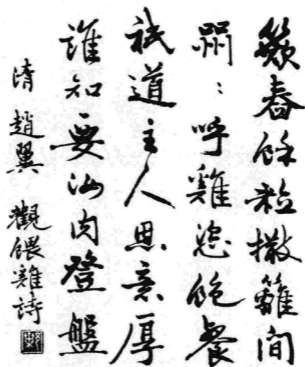 簸舂餘粒撒籬間
喌:呼雞恣飽餐
祇道主人恩意厚
誰知要汝肉登盤
清 趙翼 觀餵雞詩